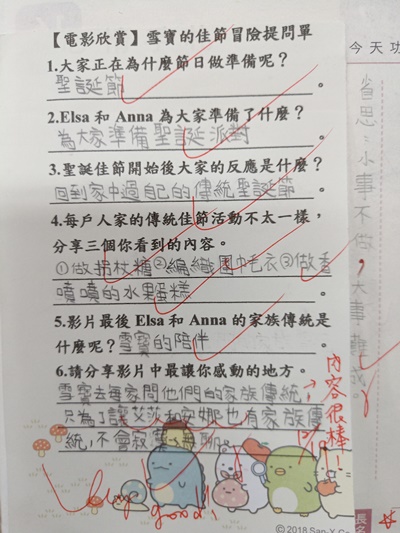 【電影欣賞】雪寶的佳節冒險提問單
1.大家正在為什麼節日做準備呢？
聖誕節。
2.Elsa 和 Anna 為大家準備了什麼？
為大家準備聖誕派對。
3.聖誕佳節開始後大家的反應是什麼？
回到家中過自己的傳統聖誕節。
4.每戶人家的傳統佳節活動不太一樣，
分享三個你看到的內容。
①做拐杖糖②編織圍巾毛衣③做香
噴噴的水果蛋糕。
5.影片最後 Elsa 和 Anna 的家族傳統是
什麼呢？雪寶的陪伴。
6.請分享影片中最讓你感動的地方。
雪寶去每家問他們的家族傳統，
只為了讓艾莎和安娜也有家族傳
統，不會寂寞無聊。
內容很棒！
12/9
Very good!
©2018 San-X Co
今天功
省思：小事不做，大事難成。
長名